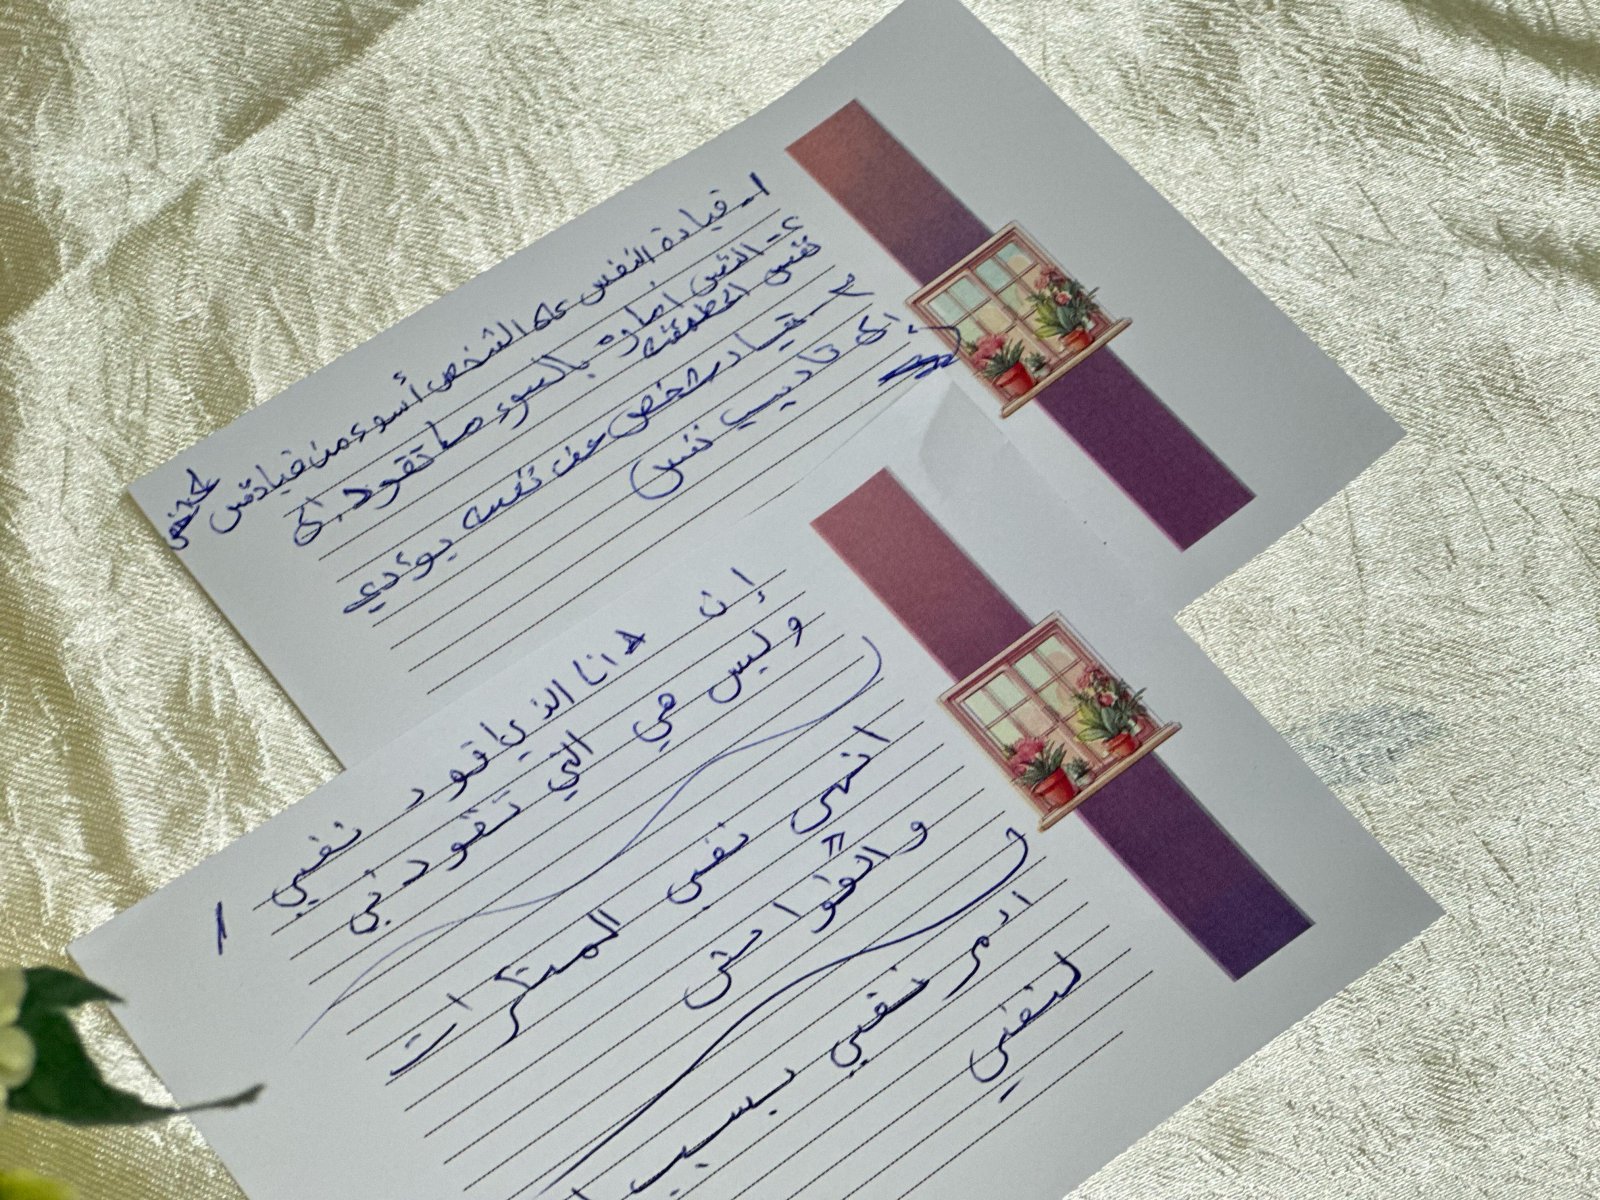 ١- قيادة النفس على الشخص أسوء من قيادة شخص
٢- النفس امارة بالسوء ما تقود الى
نفس المطمئنه
٣- قياد شخص عف نفسه يؤدي
الى تاديب نفس
إن انا الذي اقود نفسي
وليس هي التي تقود بي
انهى نفسي المنكرات
والفواحش
ادمر نفسي بسبب
لنفسي